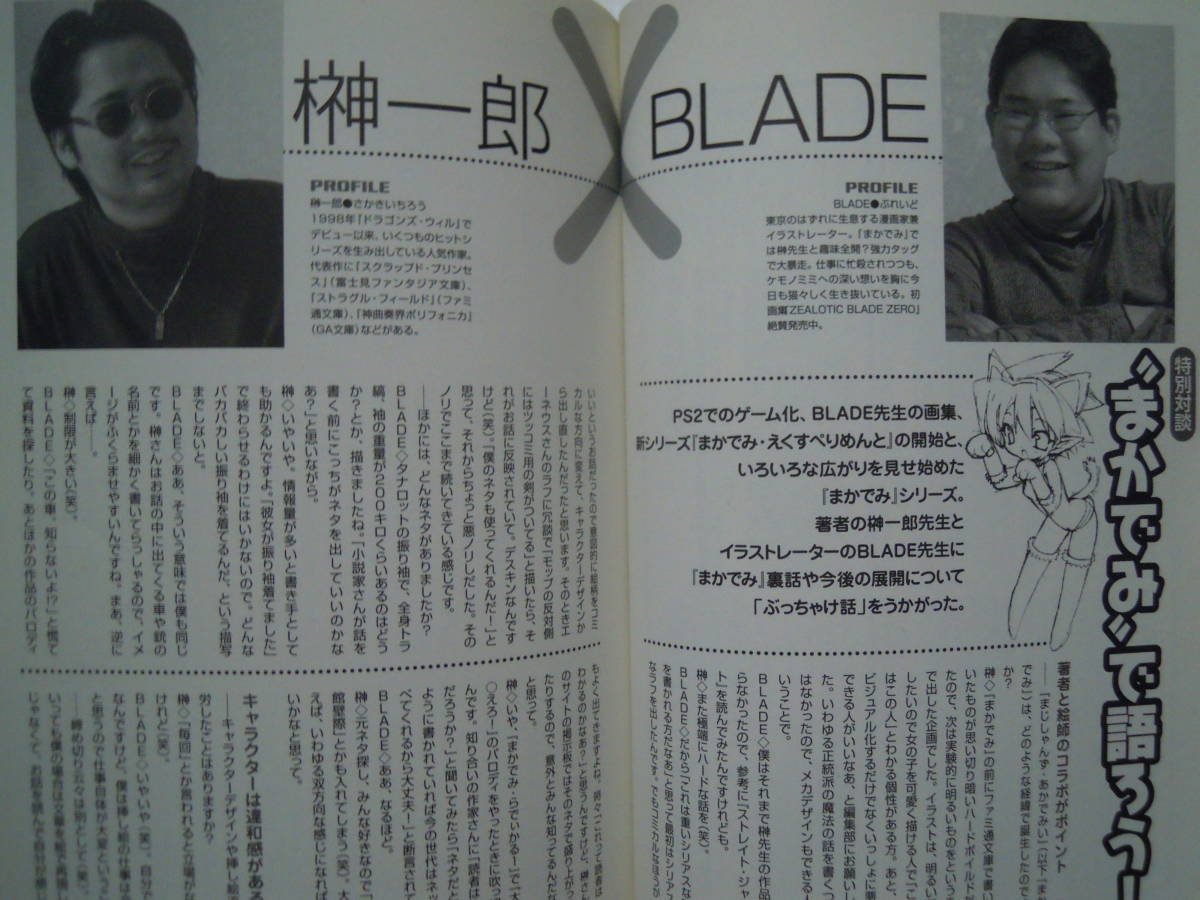 特別対談
“まかでみ”で語ろうー
榊一郎×BLADE
PROFILE
BLADE●ぶれいど
東京のはずれに生息する漫画家兼
イラストレーター。『まかでみ』で
は榊先生と趣味全開?強力タッグ
で大暴走。仕事に忙殺されつつも、
ケモノミミへの深い想いを胸に今
日も猫々しく生き抜いている。初
画集『ZEALOTIC BLADE ZERO』
絶賛発売中。
PROFILE
榊一郎●さかきいちろう
1998年『ドラゴンズ・ウィル』で
デビュー以来、いくつものヒットシ
リーズを生み出している人気作家。
代表作に『スクラップド・プリンセ
ス』(富士見ファンタジア文庫)、
『ストラグル・フィールド』(ファミ
通文庫)、『神曲奏界ポリフォニカ』
(GA文庫)などがある。
PS2でのゲーム化、BLADE先生の画集、
新シリーズ『まかでみ・えくすぺりめんと』の開始と、
いろいろな広がりを見せ始めた
『まかでみ』シリーズ。
著者の榊一郎先生と
イラストレーターのBLADE先生に
『まかでみ』裏話や今後の展開について
「ぶっちゃけ話」をうかがった。
著者と絵師のコラボがポイント
――『まじしゃんず・あかでみい』(以下『まか
でみ』)は、どのような経緯で誕生したので
か?
榊◇『まかでみ』の前にファミ通文庫で書い
いたものが思い切り暗いハードボイルドだ
たので、次は実験的に明るいものをという
で出した企画でした。イラストは、明るい
したいので女の子を可愛く描ける人で「こ
はこの人」とわかる個性がある方。あと、
ビジュアル化するだけでなくいっしょに悪
できる人がいいなあ、と編集部にお願いし
た。いわゆる正統派の魔法の話を書くつ
はなかったので、メカデザインもできる
いうことで。
BLADE◇僕はそれまで榊先生の作品
らなかったので、参考に『ストレイト・ジャ
ト』を読んでみたんですけれども。
榊◇また極端にハードな話を(笑)。
BLADE◇だから「これは重いシリアスな
を書かれる方だなあ」と思って最初はシリアス
なラフを出したんですが、
いいというお話だったので意図的に絵柄をコミ
カルな方向に変えて、キャラクターデザインか
ら出し直したんだったと思います。そのときエ
ーネウスさんのラフに冗談で「モップの反対側
にはツッコミ用の剣がついてる」と描いたら、そ
れがお話に反映されていて。デスキンなんです
けど(笑)。「僕のネタも使ってくれるんだー」と
思って、それからちょっと悪ノリしだした。その
ノリでここまで続いてきている感じです。
――ほかには、どんなネタがありましたか?
BLADE◇タナロットの振り袖で、全身トラ
縞、袖の重量が200キロくらいあるのはどう
か?とか、描きましたね。「小説家さんが話を
書く前にこっちがネタを出していいのかな
あ?」と思いながら。
榊◇いやいや。情報量が多いと書き手として
も助かるんですよ。「彼女が振り袖着てました」
で終わらせるわけにはいかないので。どんな
バカバカしい振り袖を着てるんだ、という描写
までしないと。
BLADE◇ああ、そういう意味では僕も同じ
です。榊さんはお話の中に出てくる車や銃の
名前とかを細かく書いてらっしゃるので、イメ
ージがふくらませやすいんですね。まあ、逆に
言えば――。
榊◇制限が大きい(笑)。
BLADE◇「この車、知らないよ!?」と慌て
て資料を探したり。あとほかの作品のパロディ
もよく出てきますよね。時々「これって読者は
わかるのかなあ?」と思うんですけど、榊さ
のサイトの掲示板ではそのネタで盛り上がっ
たりするので、意外とみんな知ってるんだな
と思って。
榊◇いや、『まかでみ・らでぃかるー!』で「大
○えろー!」のパロディをやったときに吹っ
んです。知り合いの作家さんに「読者は
だろうか?」と聞いてみたら「ネタだと
ように書かれていれば今の世代はネッ
べてくれるから大丈夫!」と断言されて
BLADE◇ああ、なるほど。
榊◇元ネタ探し、みんな好きなので「
館撃際」とかも入れてしまう(笑)。大
えば、いわゆる双方向な感じになれば
いいかなと思って。
キャラクターは違和感がある
――キャラクターデザインや挿し絵
労したことはありますか?
榊◇「毎回」とか言われると立場がな
けれど(笑)。
BLADE◇いやいや(笑)。自分で
なんですけど、僕は挿し絵の仕事は
と思うので仕事自体が大変という
――締め切り云々は別として(笑)。
いっても僕の場合は文章を絵で再現し
じゃなくて、お話を読んで自分が感じ